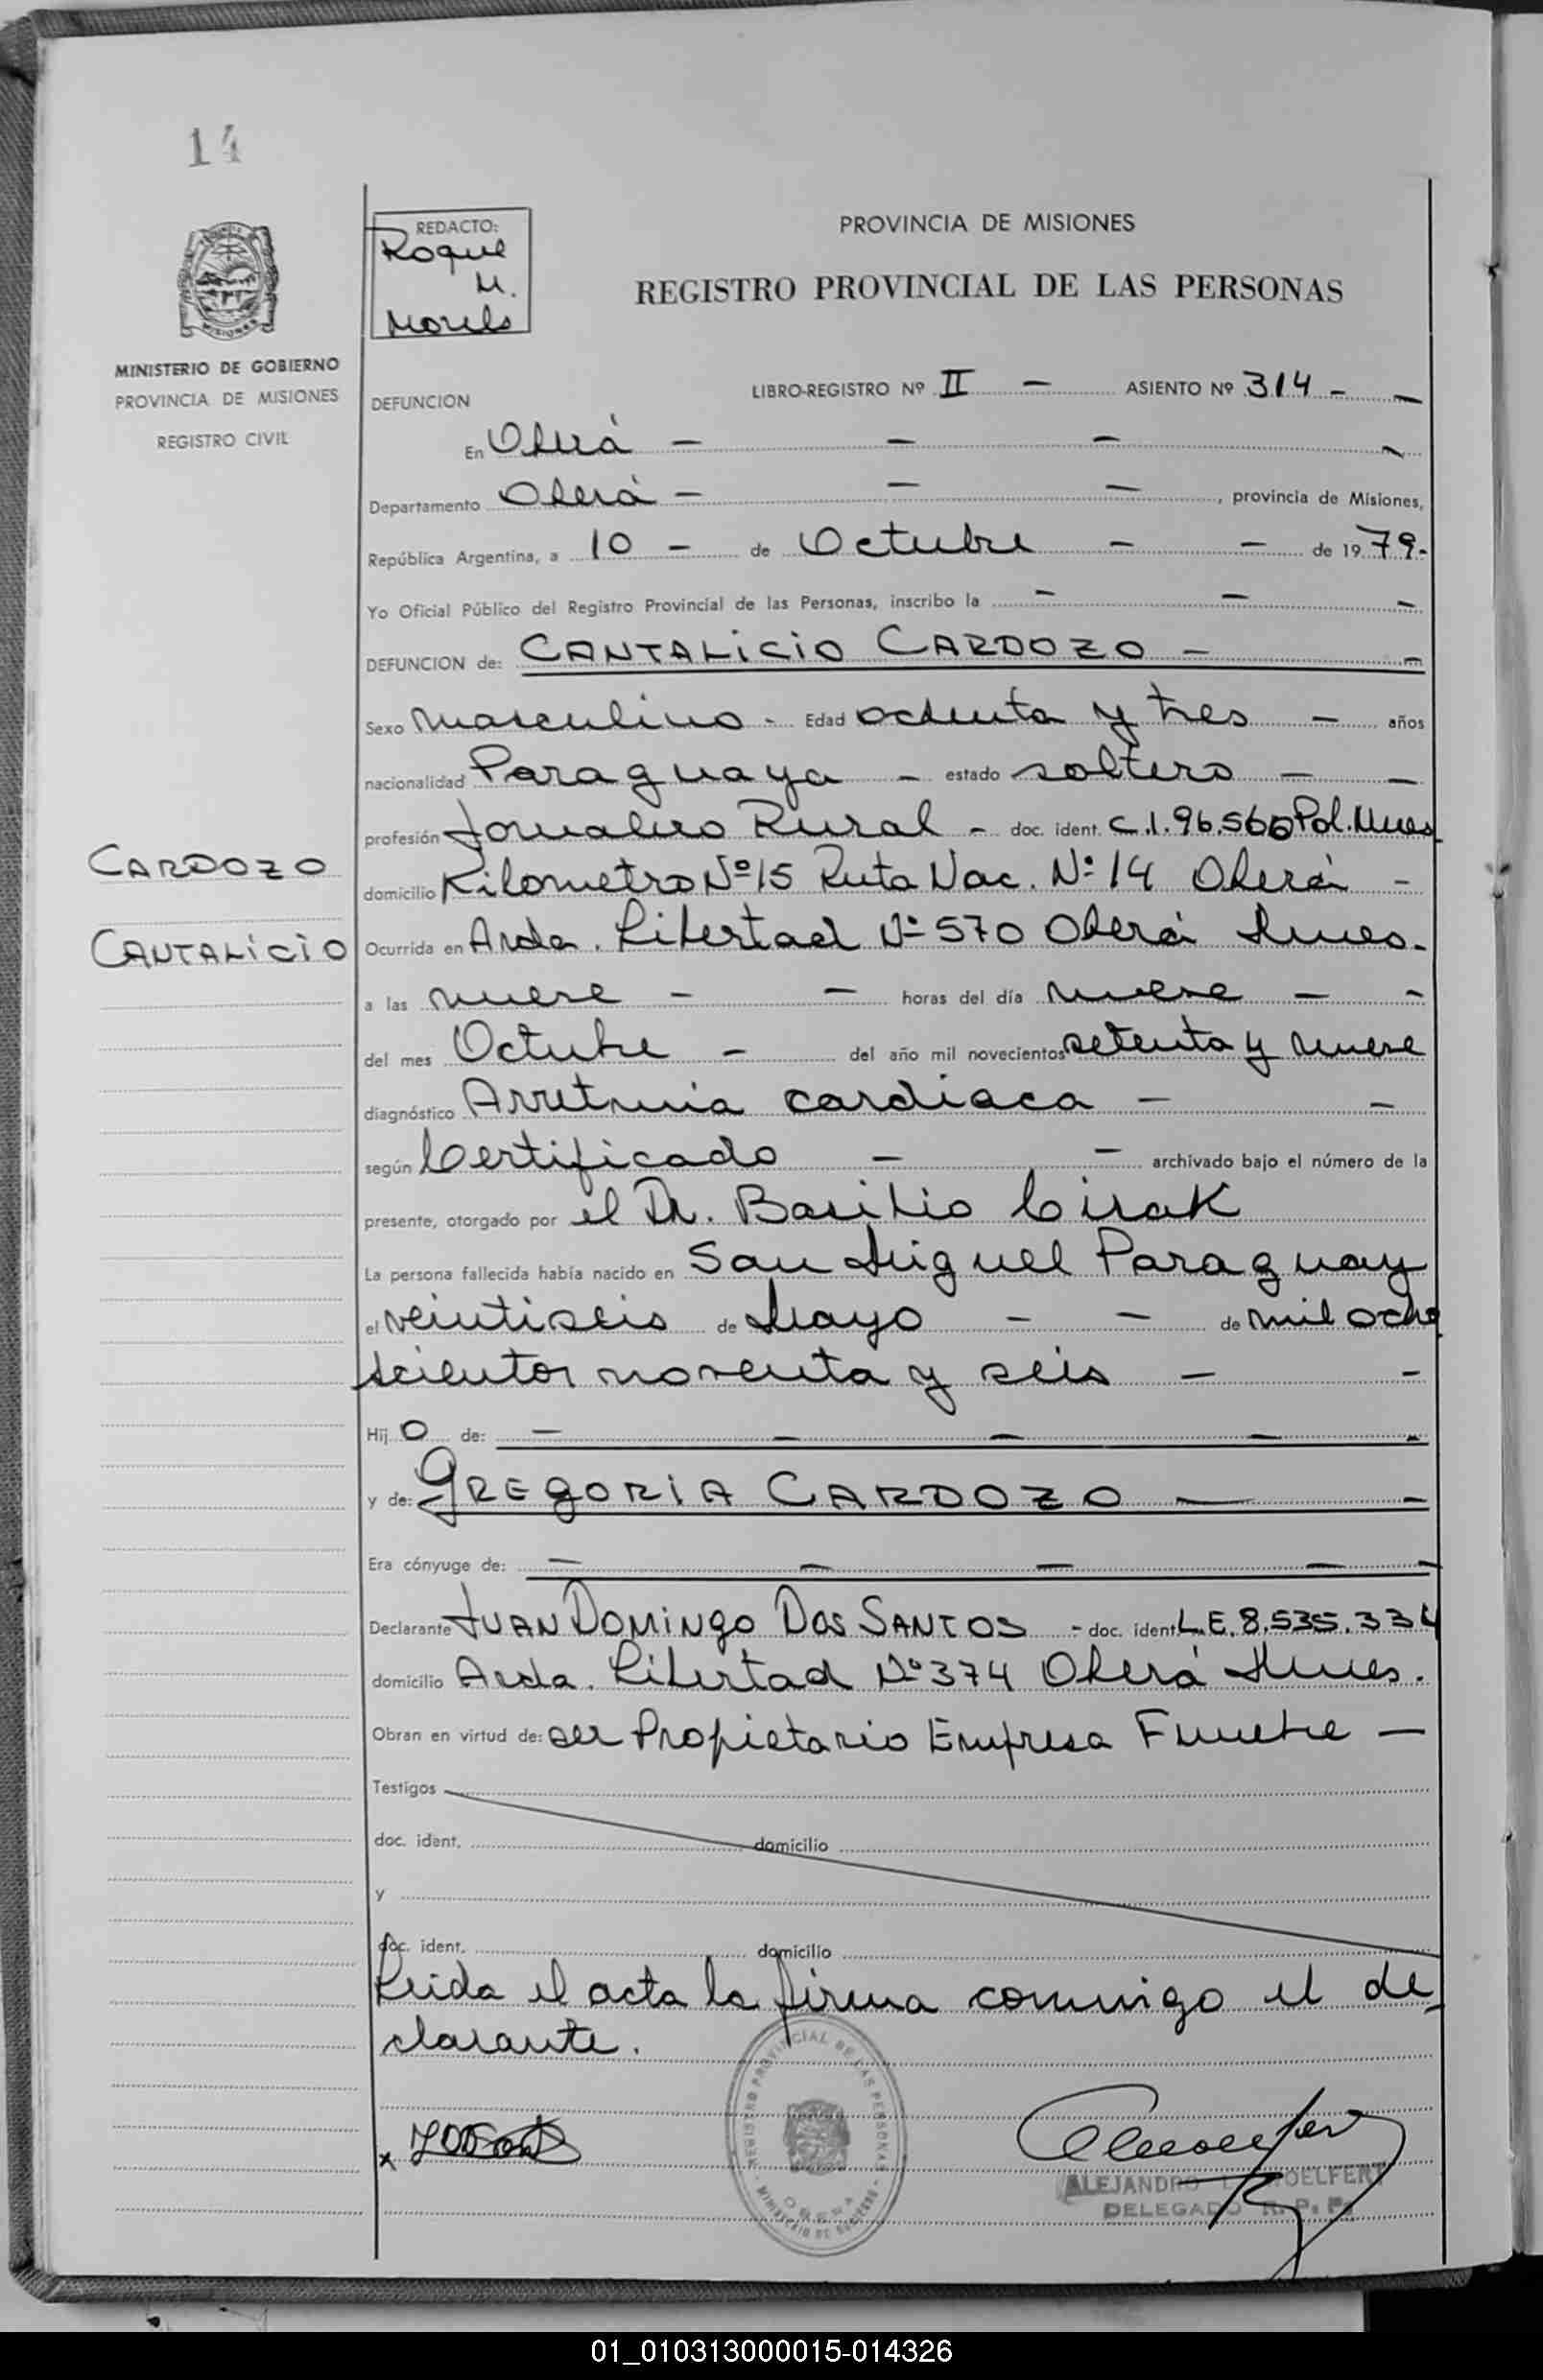 14
REDACTO:
Roque
M.
MISIONES
MINISTERIO DE GOBIERNO
PROVINCIA DE MISIONES
REGISTRO CIVIL
PROVINCIA DE MISIONES
REGISTRO PROVINCIAL DE LAS PERSONAS
LIBRO-REGISTRO Nº II - ASIENTO Nº 314 - -
DEFUNCION
En Oberá - - - -
Departamento Oberá - - - , provincia de Misiones,
República Argentina, a 10 - de Octubre - - de 1979.-
Yo Oficial Público del Registro Provincial de las Personas, inscribo la - - -
DEFUNCION de: CANTALICIO CARDOZO - -
Sexo masculino - Edad ochenta y tres - años
nacionalidad Paraguaya - estado soltero - -
profesión Jornalero Rural - doc. ident. C.I.96.560 Pol. Mnes
CARDOZO
domicilio Kilometro Nº 15 Ruta Nac. Nº 14 Oberá -
CANTALICIO
Ocurrida en Avda. Libertad Nº 570 Oberá Mnes.
a las nueve - - horas del día nueve - -
del mes Octubre - del año mil novecientos setenta y nueve
diagnóstico Arritmia cardiaca - -
según Certificado - - archivado bajo el número de la
presente, otorgado por el Dr. Basilio Cirak
La persona fallecida había nacido en San Miguel Paraguay
el veintiseis de Mayo - - de mil ocho
scientos noventa y seis - -
Hij o de: - - - - -
y de: GREGORIA CARDOZO - -
Era cónyuge de: - - - - -
Declarante JUAN DOMINGO DOS SANTOS - doc. ident L.E. 8.535.334
domicilio Avda. Libertad Nº 374 Oberá Mnes.
Obran en virtud de: ser Propietario Empresa Funebre -
Testigos
doc. ident. domicilio
y
doc. ident. domicilio
Leida el acta la firma conmigo el de-
clarante.
REGISTRO PROVINCIAL DE LAS PERSONAS
MINISTERIO DE GOBIERNO
OBERA
x
ALEJANDRO
DELEGADO R. P. P.
01_010313000015-014326